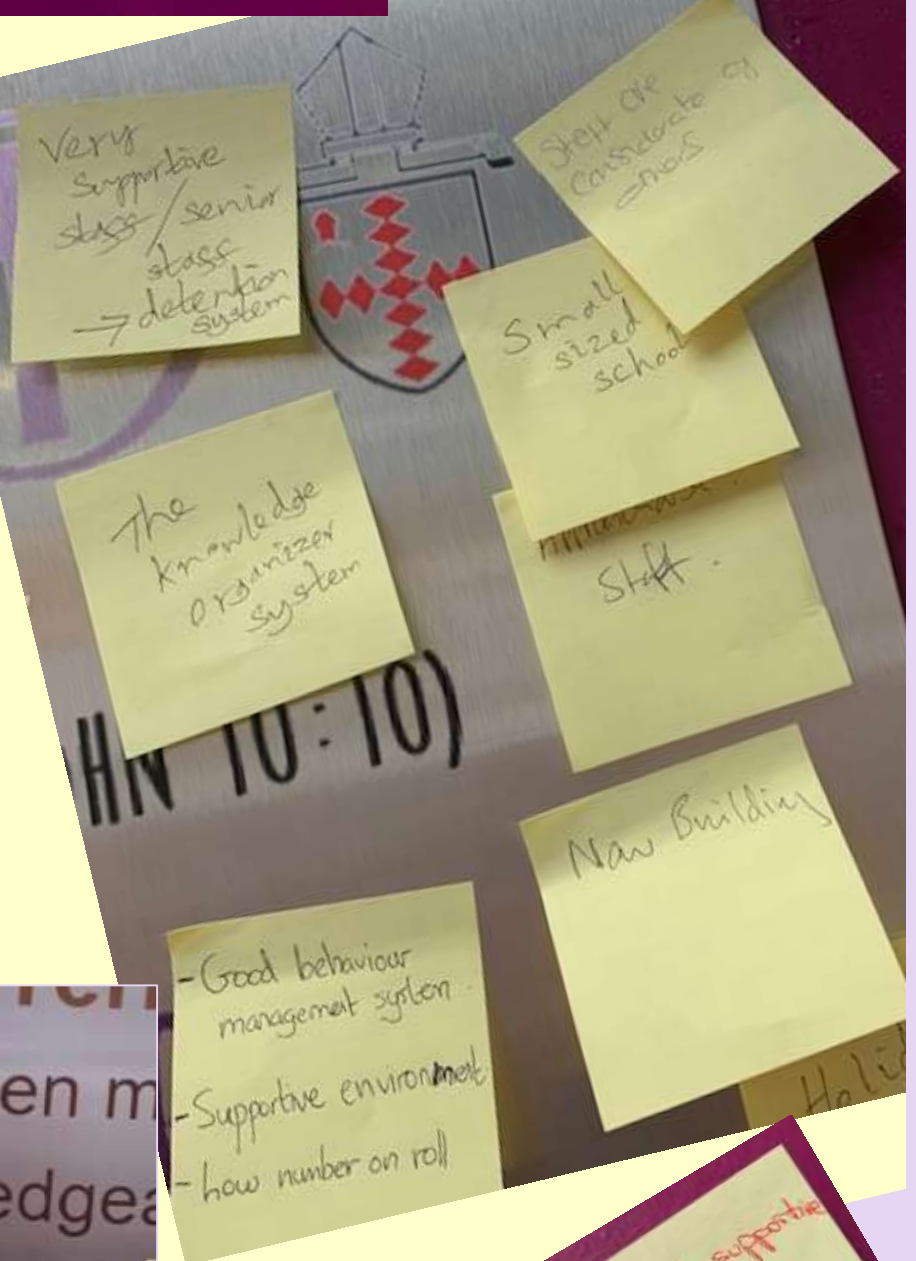 Very
supportive
staff/senior
staff
→ detention
system
Staff are
considerate of
Small
sized
school
Staff.
The
knowledge
organizer
system
HN 10:10)
New Building
- Good behaviour
management system.
- Supportive environment
- Low number on roll
Holid
en m
edgea
supportive